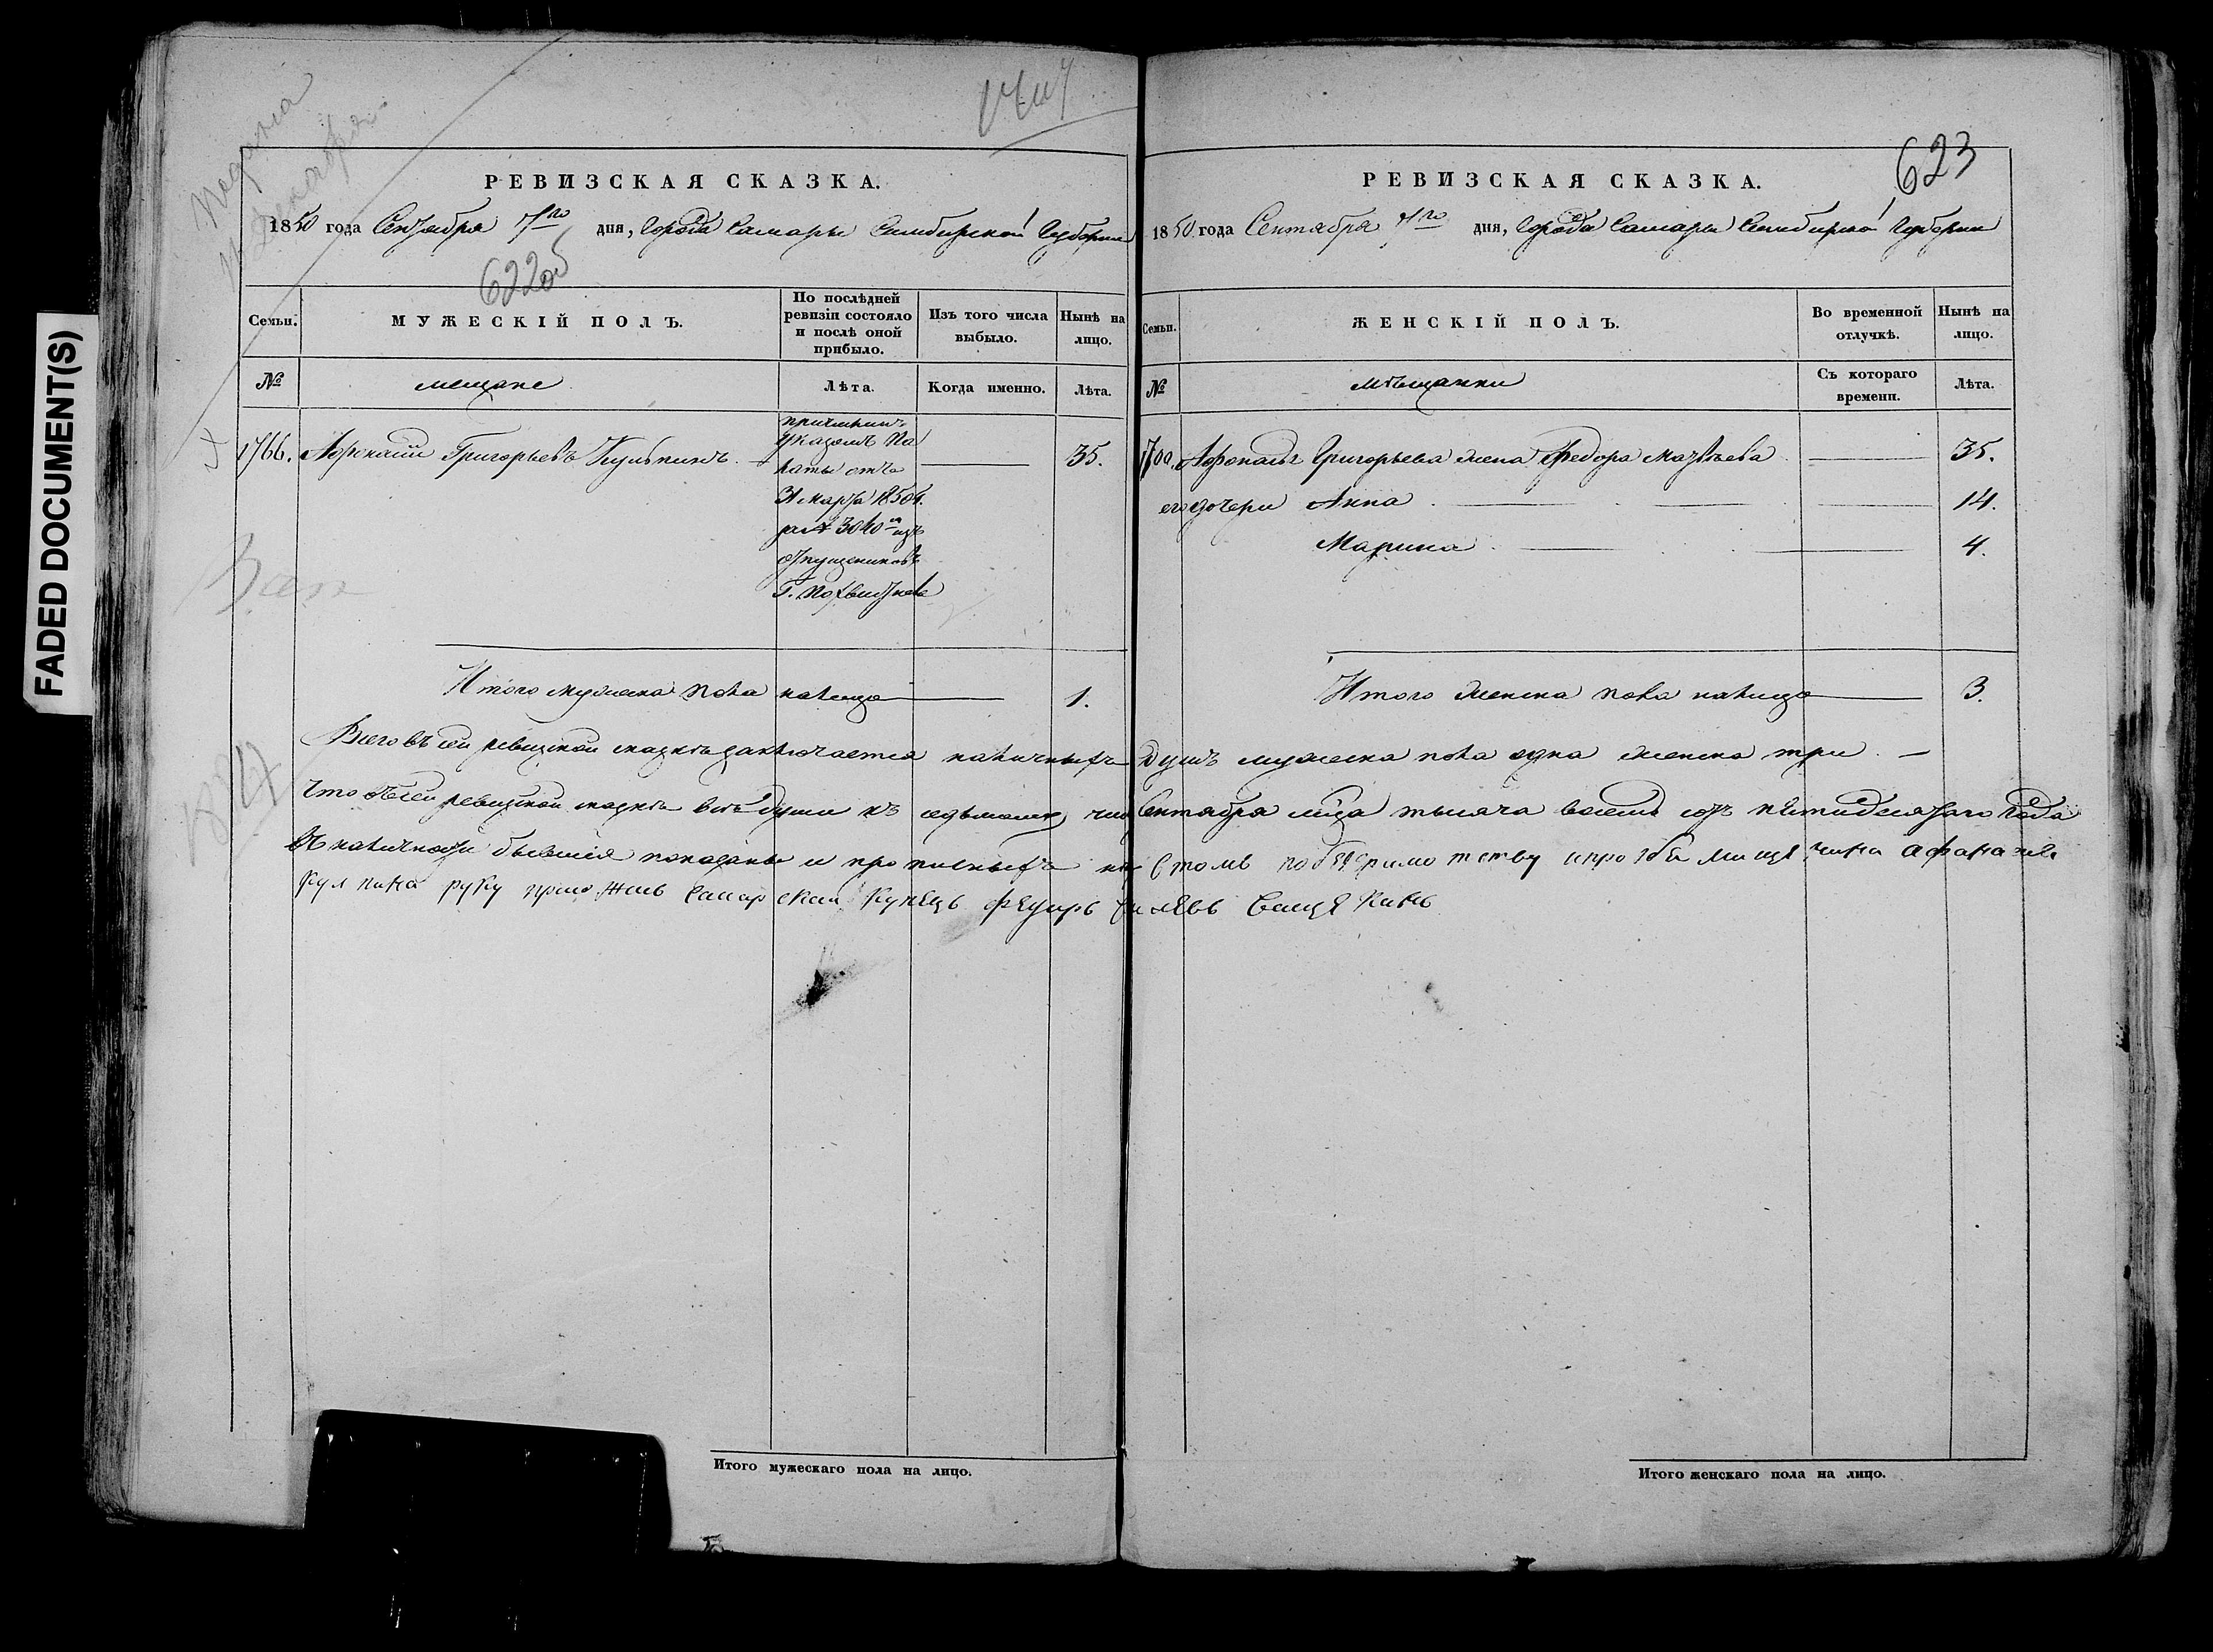 FADED DOCUMENT(S)
РЕВИЗСКАЯ СКАЗКА.
1850 года Сентября 7го дня, Города Самары Симбирской Губернии
622 об
Семьи. МУЖЕСКІЙ ПОЛЪ. По послѣдней ревизіи состояло и послѣ оной прибыло. Изъ того числа выбыло. Нынѣ на лицо.
№ мещане Лѣта. Когда именно. Лѣта.
1766. Афонасий Григорьевъ Кульпинъ 35.
причисленъ
Указомъ Па
латы отъ
31 марта 1850 г.
за № 3040 м изъ
отпущениковъ
Г.
Итого мужеска пола налицо 1.
623
РЕВИЗСКАЯ СКАЗКА.
1850 года Сентября 7го дня, Города Самары Симбирской Губернии
Семьи. ЖЕНСКІЙ ПОЛЪ. Во временной отлучкѣ. Нынѣ на лицо.
№ мѣщанки Съ котораго времени. Лѣта.
Афонасья Григорьева жена Федора Матвѣева 35.
его дочери Анна 14.
Марина 4.
Итого женска пола налицо 3.
Всего въ сей ревизской сказкѣ заключается наличныхъ душъ мужеска пола одна женска три
Что въ сей ревизской сказкѣ всѣ души къ седьмому числ Сентября мца тысяча восемь сотъ пятидесятаго года
въ наличности бывшія показаны и прописныхъ нѣ
Кулпина руку приложилъ Самарскай Купецъ Федоръ
Итого мужескаго пола на лицо.
Итого женскаго пола на лицо.